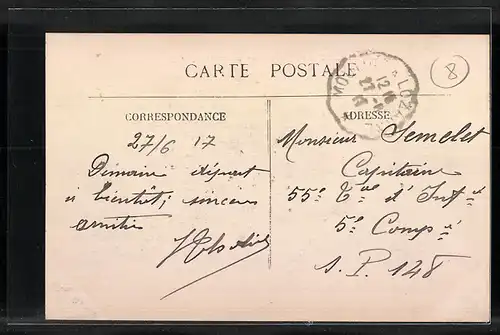 CARTE POSTALE
8
CORRESPONDANCE
ADRESSE
27/6 17
Demain départ
à bientôt; sincère
amitié
Monsieur Semelet
Capitaine
55e Tal d'Inft
5e Comp
S. P. 148